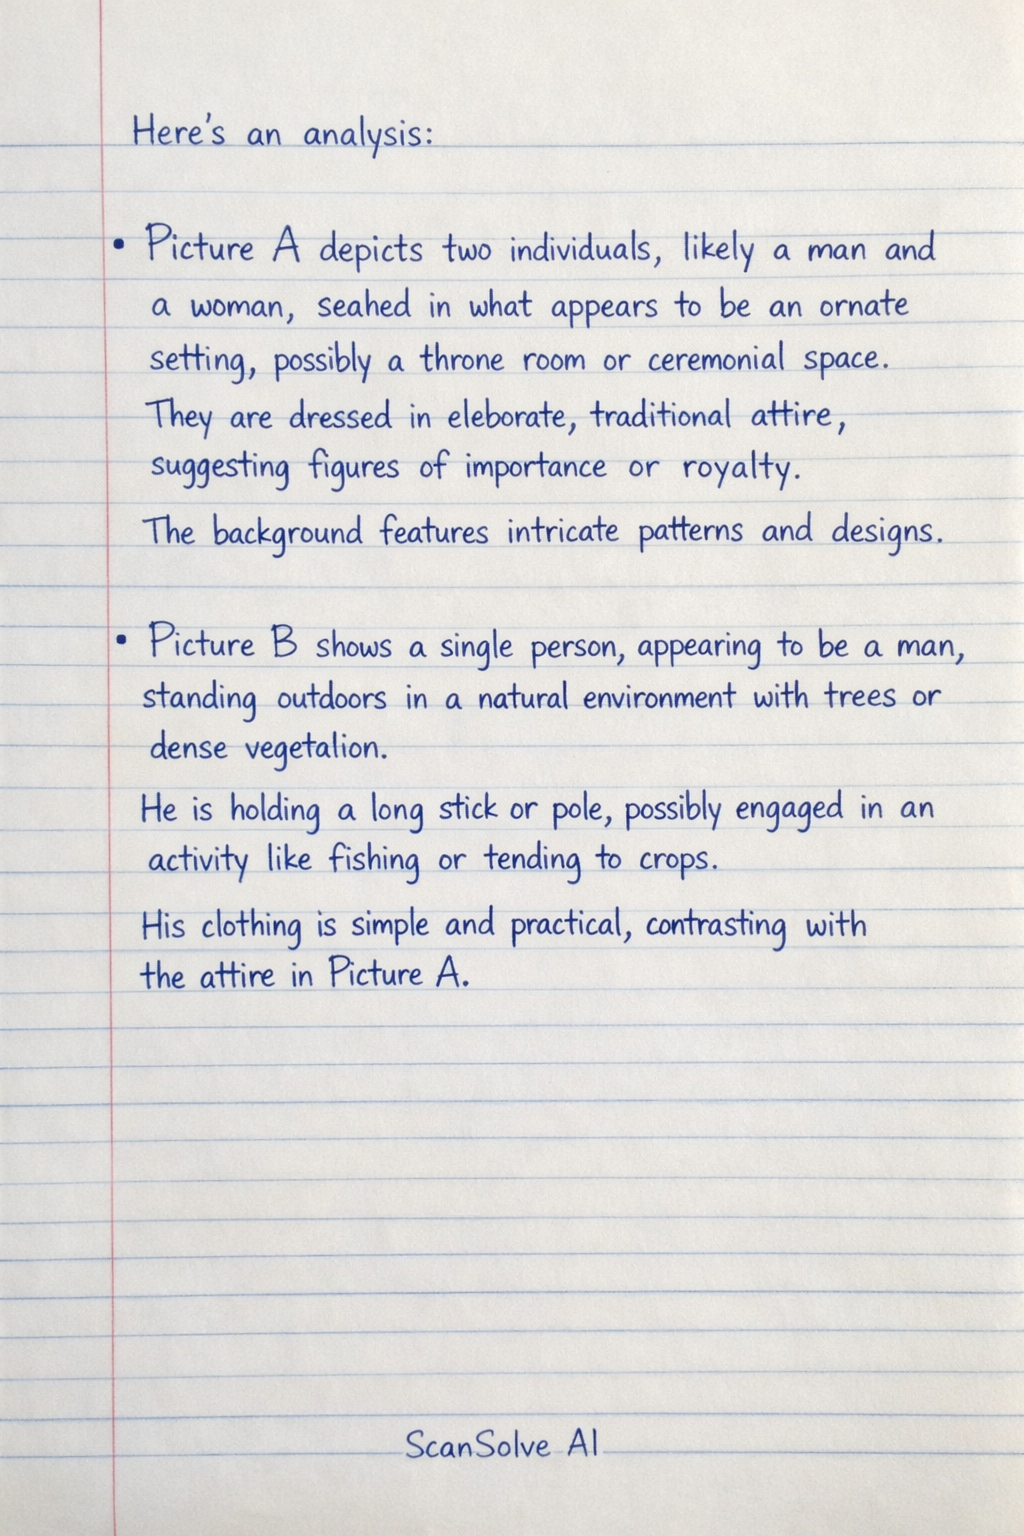 Here's an analysis:
• Picture A depicts two individuals, likely a man and
a woman, seahed in what appears to be an ornate
setting, possibly a throne room or ceremonial space.
They are dressed in eleborate, traditional attire,
suggesting figures of importance or royalty.
The background features intricate patterns and designs.
• Picture B shows a single person, appearing to be a man,
standing outdoors in a natural environment with trees or
dense vegetalion.
He is holding a long stick or pole, possibly engaged in an
activity like fishing or tending to crops.
His clothing is simple and practical, contrasting with
the attire in Picture A.
ScanSolve AI